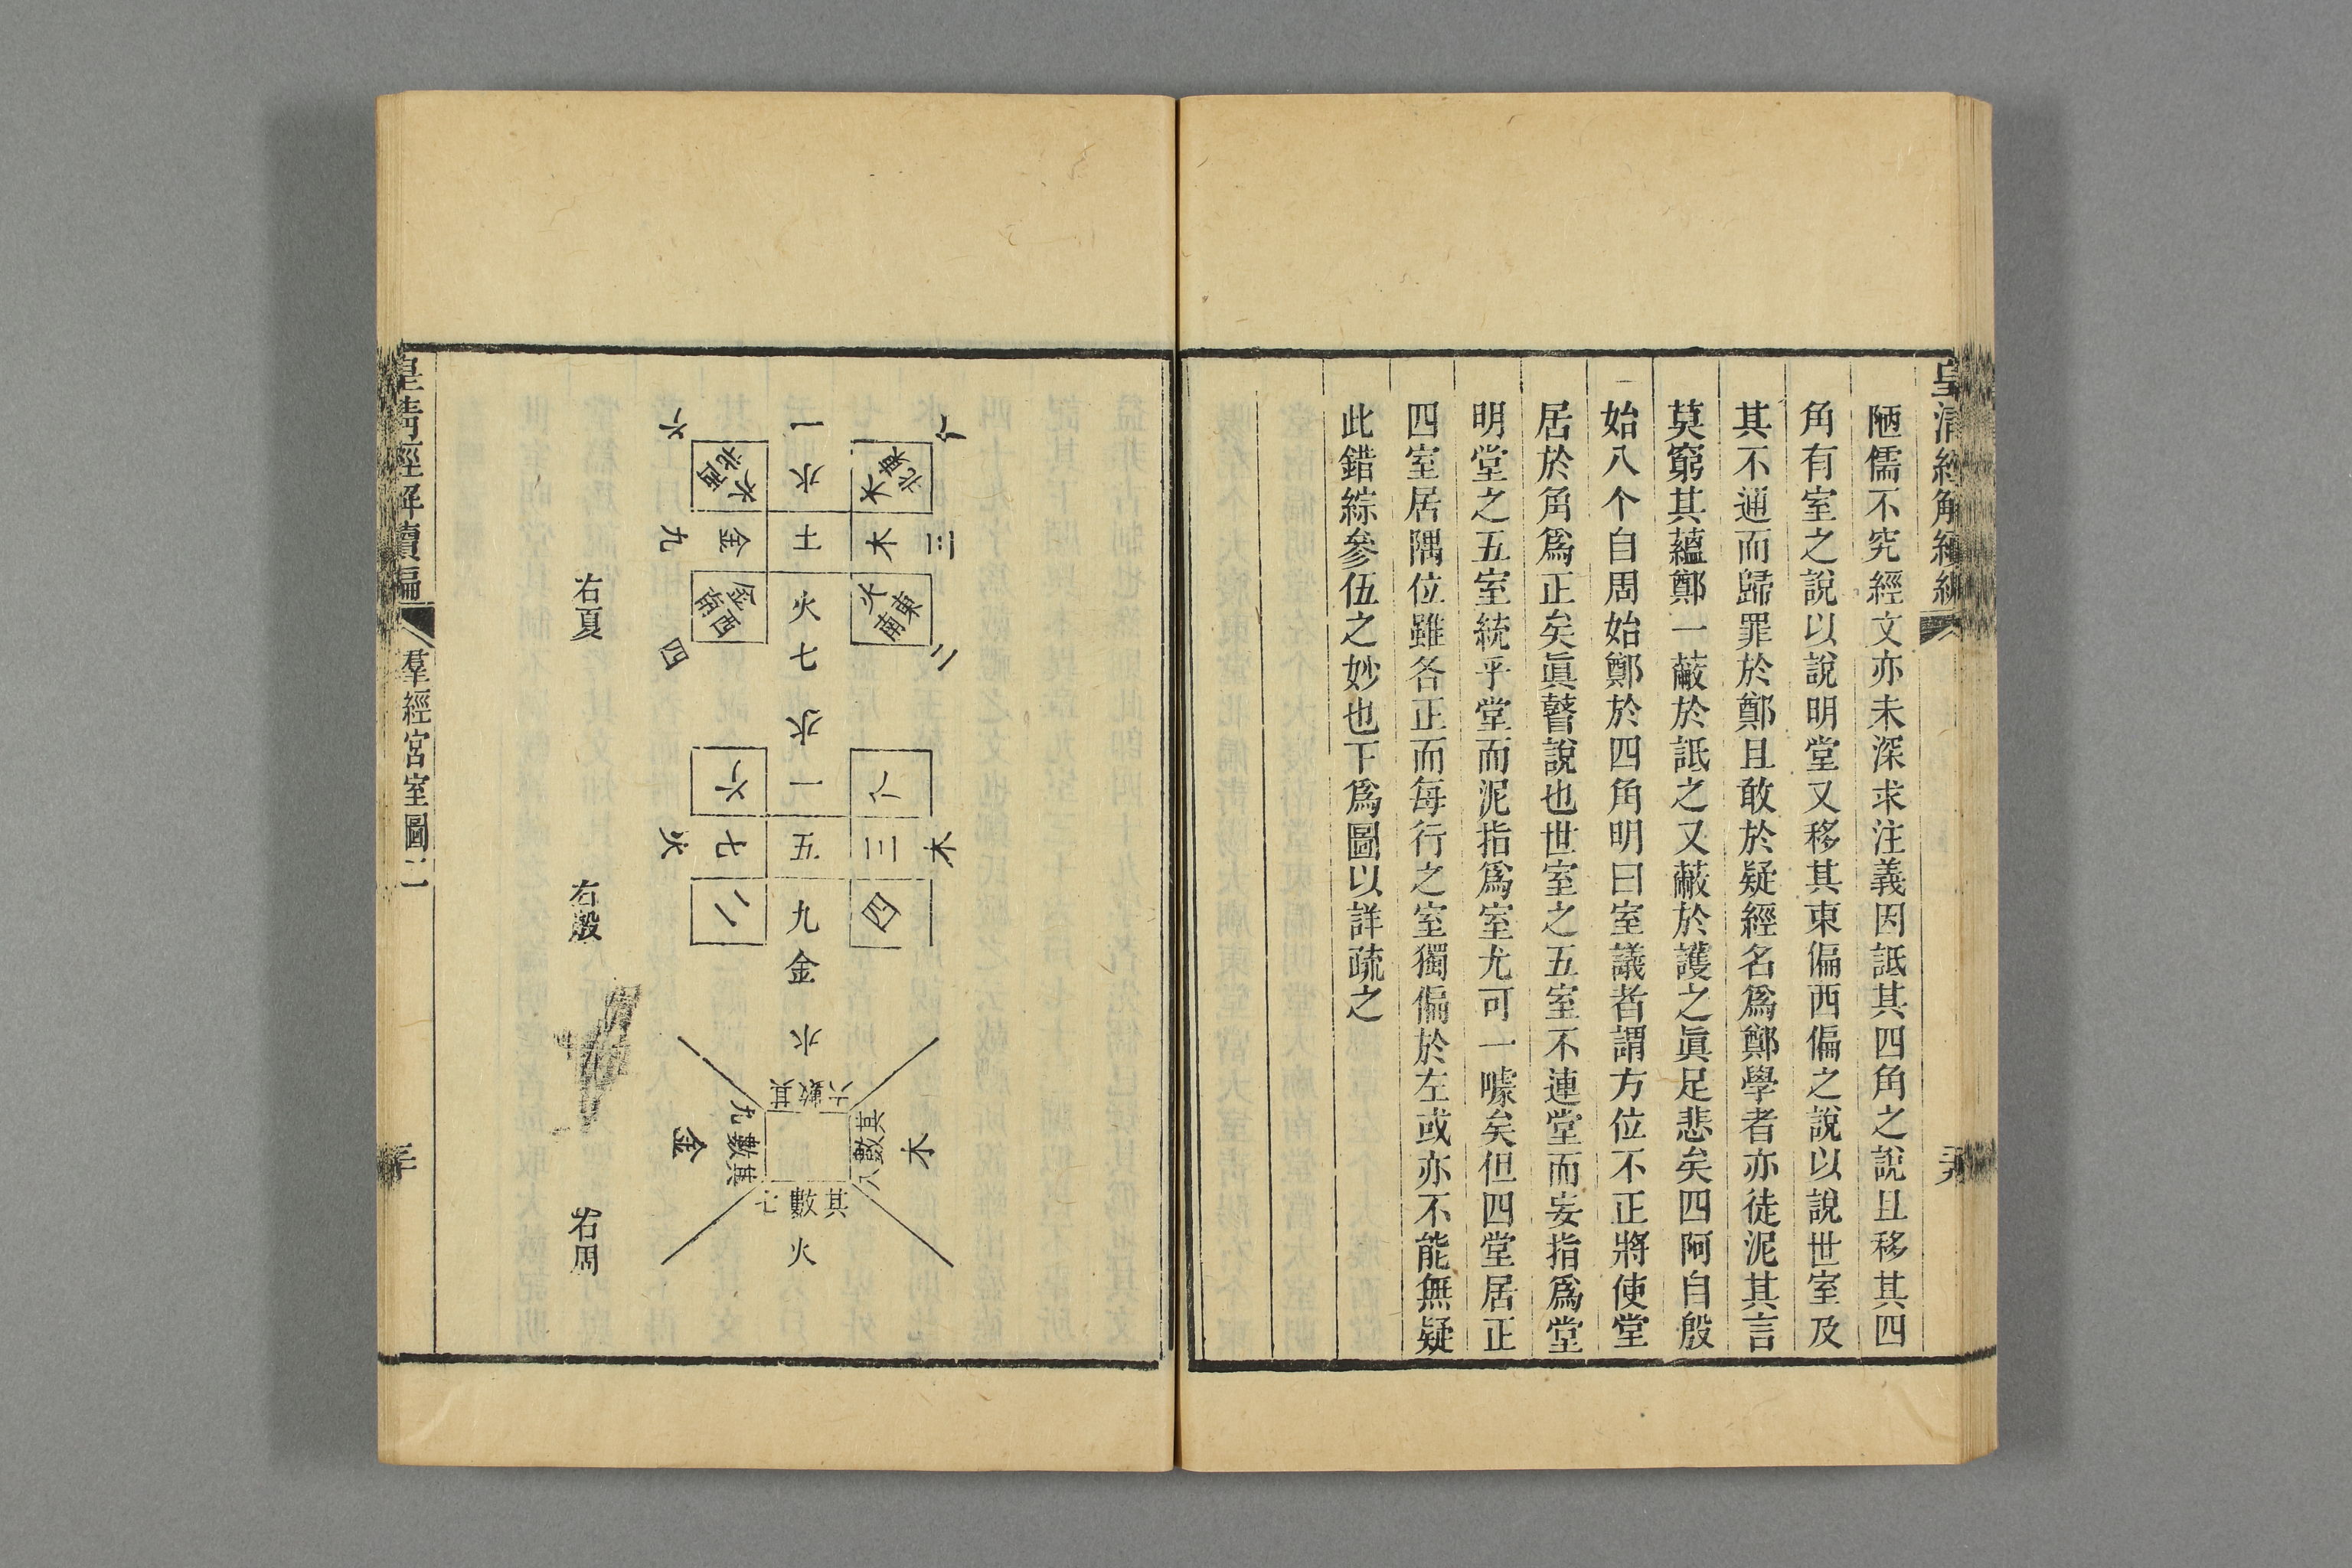 皇清經解續編
陋儒不究經文亦未深求注義因詆其四角之說且移其四
角有室之說以說明堂又移其東偏西偏之說以說世室及
其不通而歸罪於鄭且敢於疑經名爲鄭學者亦徒泥其言
莫窮其蘊鄭一蔽於詆之又蔽於護之眞足悲矣四阿自殷
始八个自周始鄭於四角明曰室議者謂方位不正將使堂
居於角爲正矣眞瞽說也世室之五室不連堂而妄指爲堂
明堂之五室統乎堂而泥指爲室尤可一噱矣但四堂居正
四室居隅位雖各正而每行之室獨偏於左或亦不能無疑
此錯綜參伍之妙也下爲圖以詳疏之
六 一 六
東北 木 水 西北 水
三 木 土 金 九
東南 火 火 西南 金
二 七 四
右夏
水
六 一 六
木 三 五 七 火
四 九 二
金
右殷
水
其數六
木 其數八 其數九 金
其數七
火
右周
皇清經解續編
羣經宮室圖二